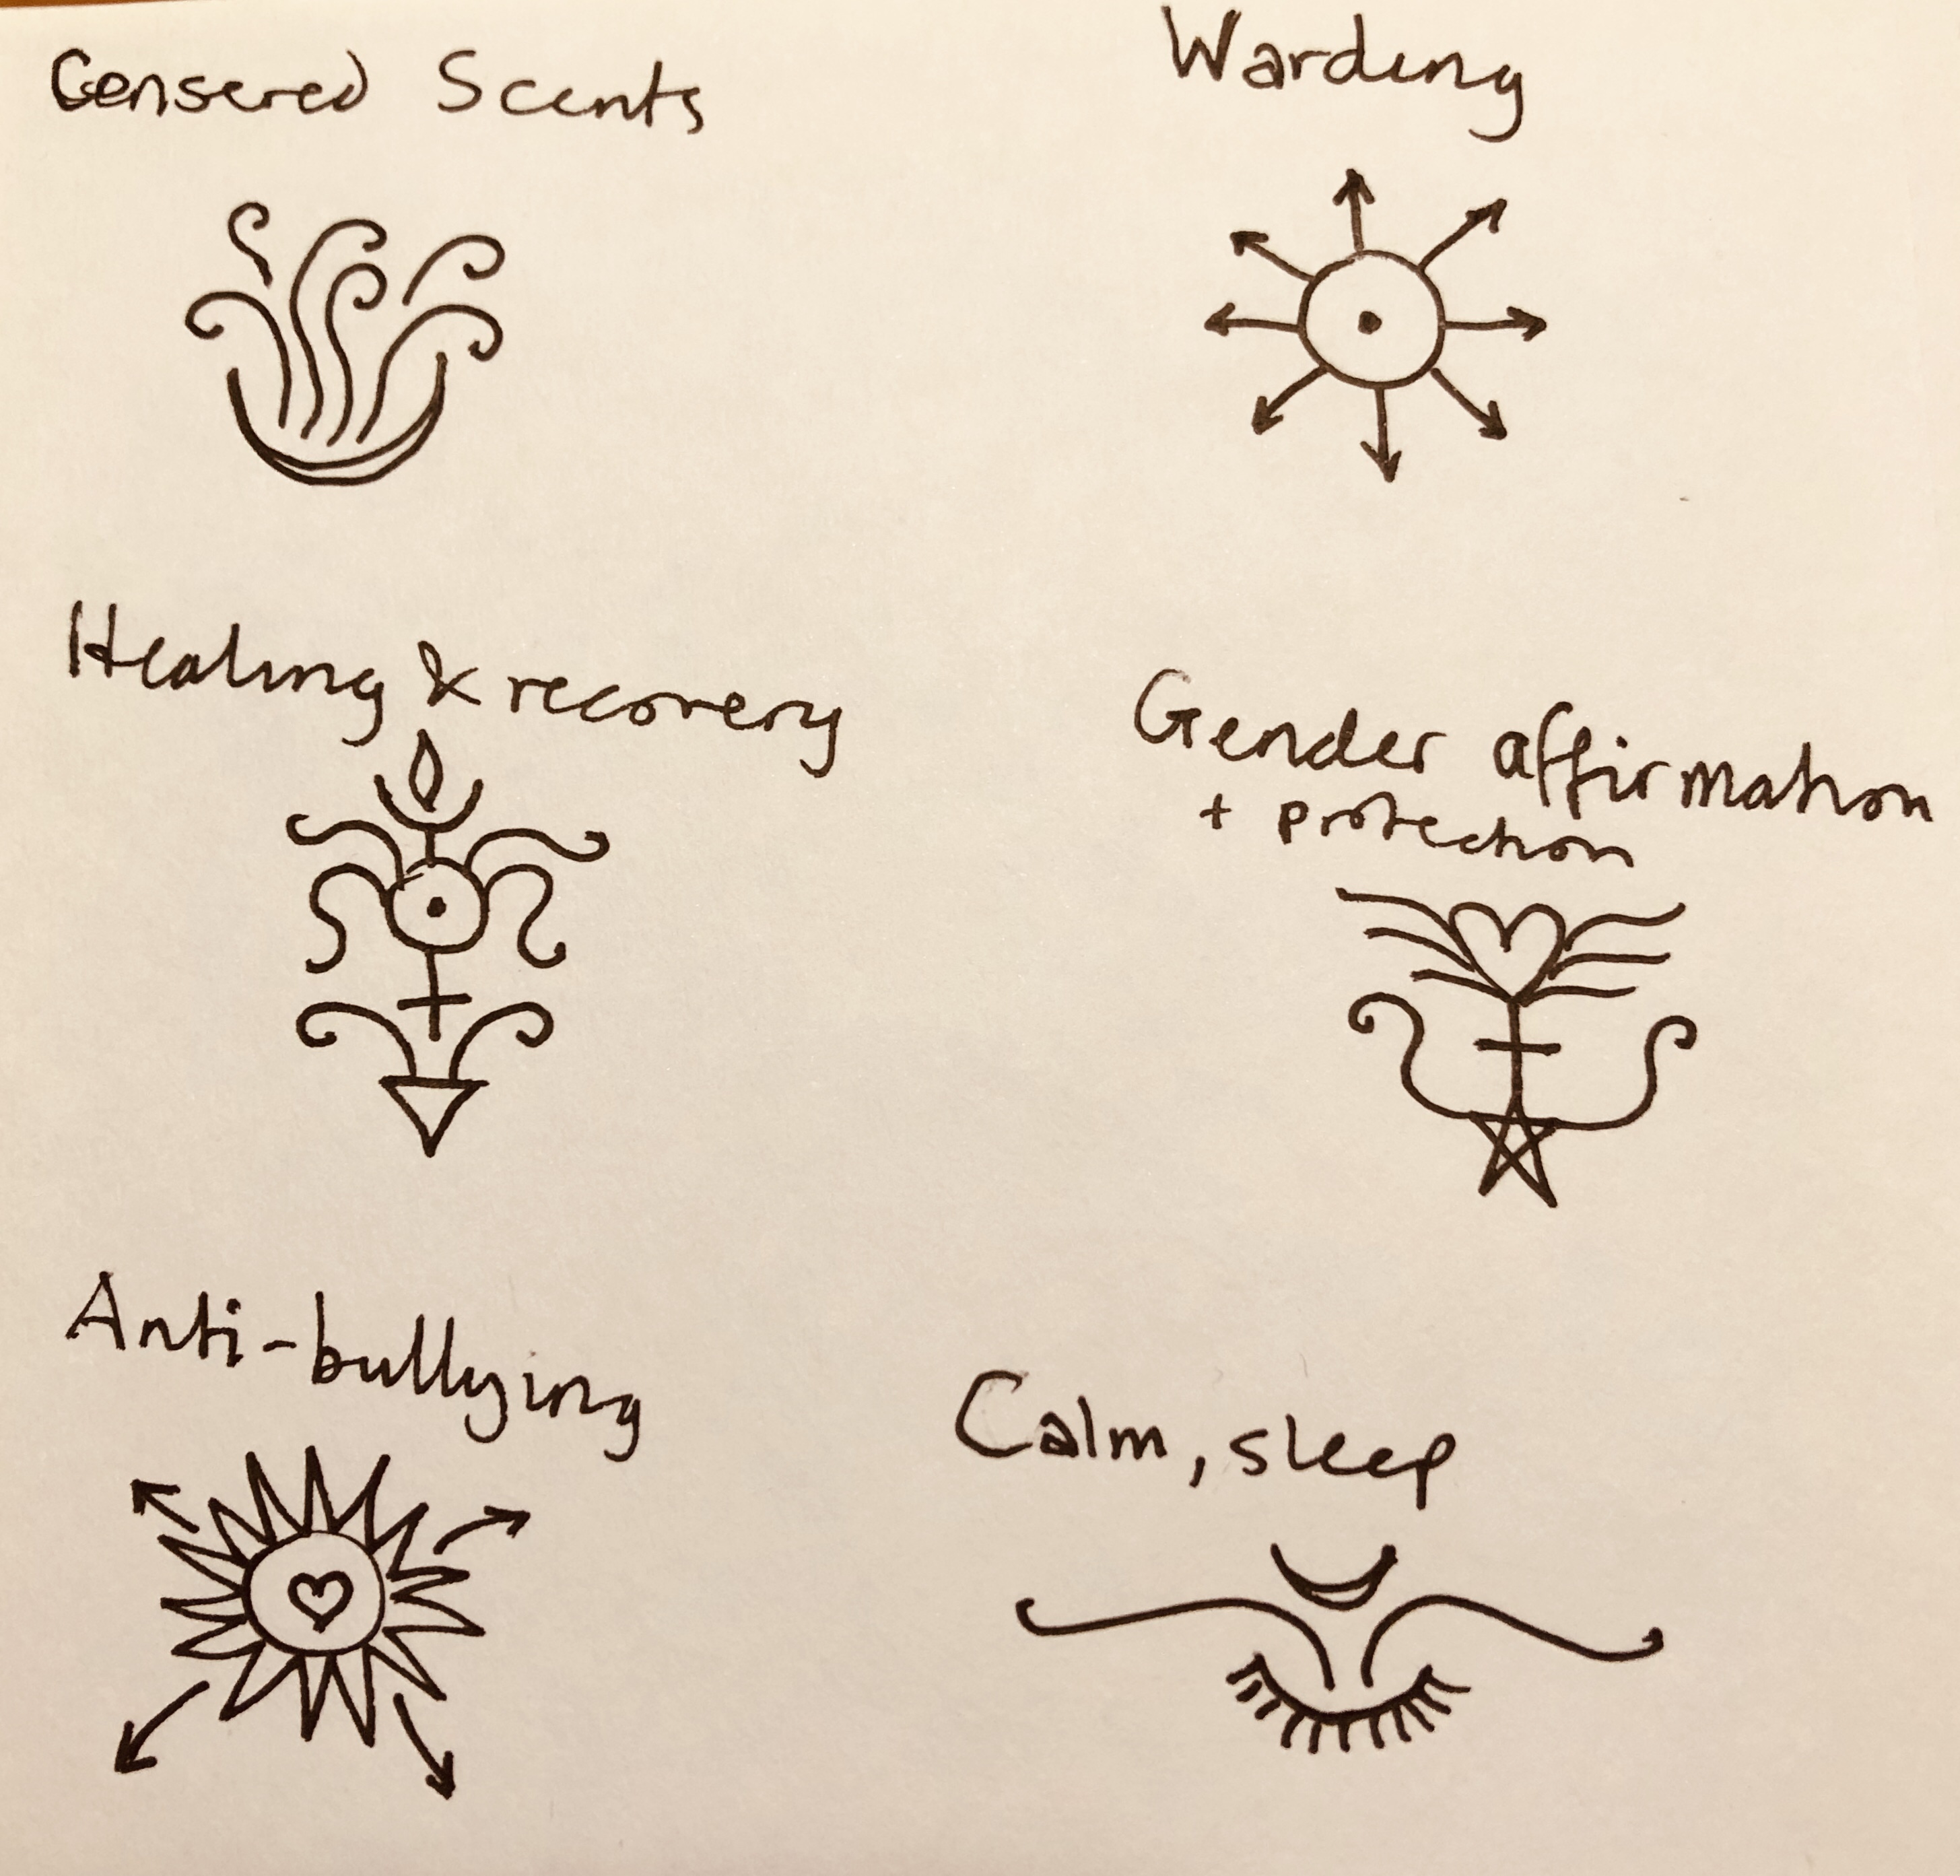 Censered Scents
Warding
Healing & recovery
Gender affirmation
+ protection
Anti-bullying
Calm, sleep